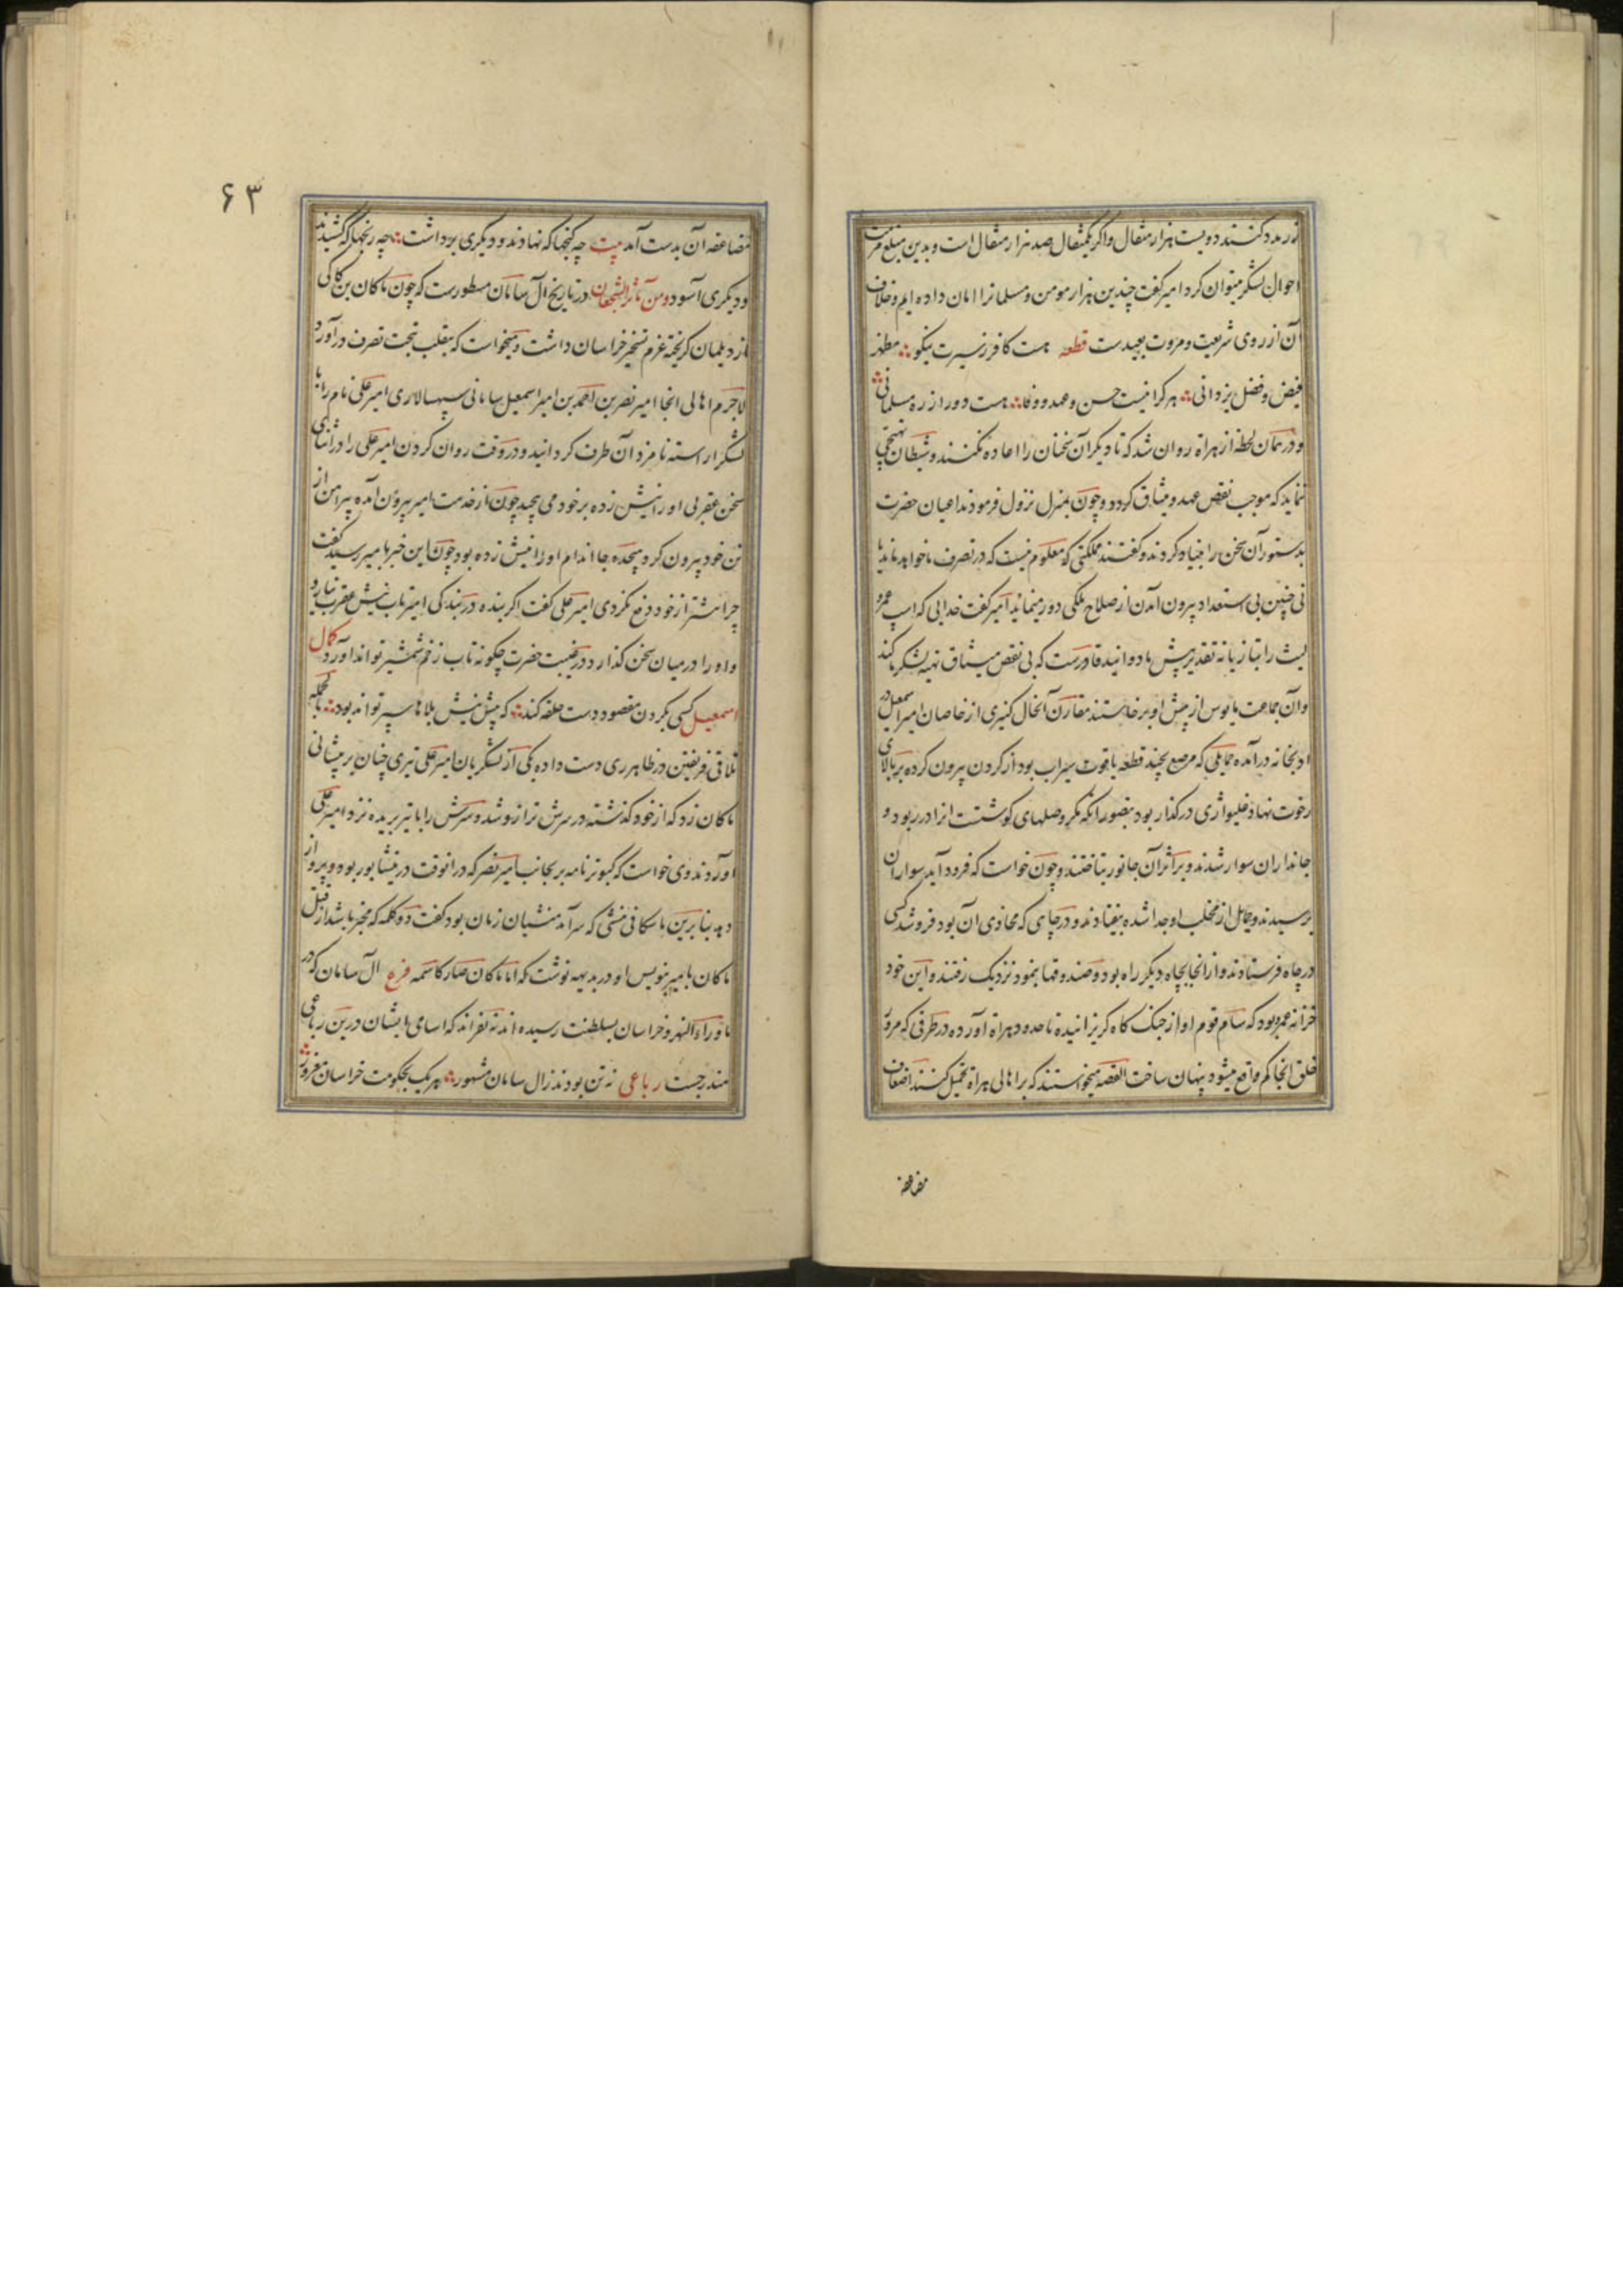 زر مدد کنند دویست هزار مثقال و اگر یکمثقال صد هزار مثقال است و بدین مبلغ مرمت
احوال لشکر میتوان کرد امیر گفت چندین هزار مومن و مسلمانرا امان داده ایم و خلاف
آن از روی شریعت و مروت بعیدست قطعه هست کافر ز سیرت نیکو مظهر
فیض و فضل یزدانی هر کرا نیست حسن و عهد و وفا هست دور از ره مسلمانی
و در همان لحظه از هراة روان شد که تا دیگر آن سخنان را اعاده نکنند و شیطان تهییجی
ننماید که موجب نقض عهد و میثاق گردد و چون بمنزل نزول فرمودند اعیان حضرت
بدستور آن سخن را بنیاد کردند و گفتند مملکتی که معلوم نیست که در تصرف ما خواهد ماند یا
نی چنین بی استعداد بیرون آمدن از صلاح ملکی دور مینماید امیر گفت خدایی که اسب عمرو
لیث را بتازیانه تقدیر پیش ما دوانید قادرست که بی نقض میثاق تهیه لشکر ما کند
و آن جماعت مایوس از پیش او برخاستند مقارن آنحال کنیزی از خاصان امیر اسمعیل در
او بخانه درآمده حمایلی که مرصع بچند قطعه یاقوت سیراب بود از گردن بیرون کرده بر بالای
رخوت نهاد غلیواژی در گذار بود بتصور آنکه مگر وصلهای گوشتست آنرا در ربود و
جانداران سوار شدند و بر اثر آن جانور بتاختند و چون خواست که فرود آید سواران
برسیدند و حمایل از مخلب او جدا شده بیفتاد و در چاهی که محاذی آن بود فرو شد کسی
در چاه فرستادند و از انجا بچاه دیگر راه بود و صندوقها نمود نزدیک رفتند و این خود
خزانه عمرو بود که سام قوم او از جنگ گاه گریزانیده تا حدود هراة آورده در طرفی که مرور
خلق آنجا کم واقع میشود پنهان ساخت القصه میخواستند که بر اهالی هراة تحمیل کنند اضعاف
مضاعفه
۶۳
مضاعفه آن بدست آمد بیت چه گنجها که نهادند و دیگری برداشت چه رنجها که کشیدند
و دیگری آسود و من مآثر الشجعان در تاریخ آل سامان مسطورست که چون ماکان بن کاکی
از دیلمان گریخته عزم تسخیر خراسان داشت و میخواست که بتغلب بتحت تصرف درآورد
لاجرم اهالی انجا امیر نصر بن احمد بن امیر اسمعیل سامانی سپهسالاری امیر علی نام را با
لشکر آراسته نامزد آن طرف گردانید و در وقت روان کردن امیر علی را در اثنای
سخن عقربی او را نیش زده بر خود می پیچید چون از خدمت امیر بیرون آمده پیراهن از
تن خود بیرون کرد هیجده جا اندام او را نیش زده بود چون این خبر بامیر رسید گفت
چرا پیشتر از خود دفع نکردی امیر علی گفت اگر بنده در بندگی امیر تاب نیش عقرب نیارد
و او را در میان سخن گذارد در غیبت حضرت چگونه تاب زخم شمشیر تواند آورد کمال
اسمعیل کسی بگردن مقصود دست حلقه کند که پیش نیش بلاها سپر تواند بود بالجمله
تلاقی فریقین در ظاهر ری دست داده یکی از لشکریان امیر علی تیری چنان بر پیشانی
ماکان زد که از خود گذشته در سرش ترازو شد و سرش را با تیر بریده نزد امیر علی
آوردند وی خواست که کبوتر نامه بر بجانب امیر نصر که در انوقت در نیشابور بود و پرواز
دهد بنابرین باسکافی منشی که سرآمد منشیان زمان بود گفت دو کلمه که مخبر باشد از قتل
ماکان بامیر بنویس او در بدیهه نوشت که اما ماکان صار کاسمه فرع آل سامان که در
ماوراء النهر و خراسان بسلطنت رسیده اند نه نفراند که اسامی ایشان درین رباعی
مندرجست رباعی نه تن بودند ز آل سامان مشهور هر یک بحکومت خراسان مغرور